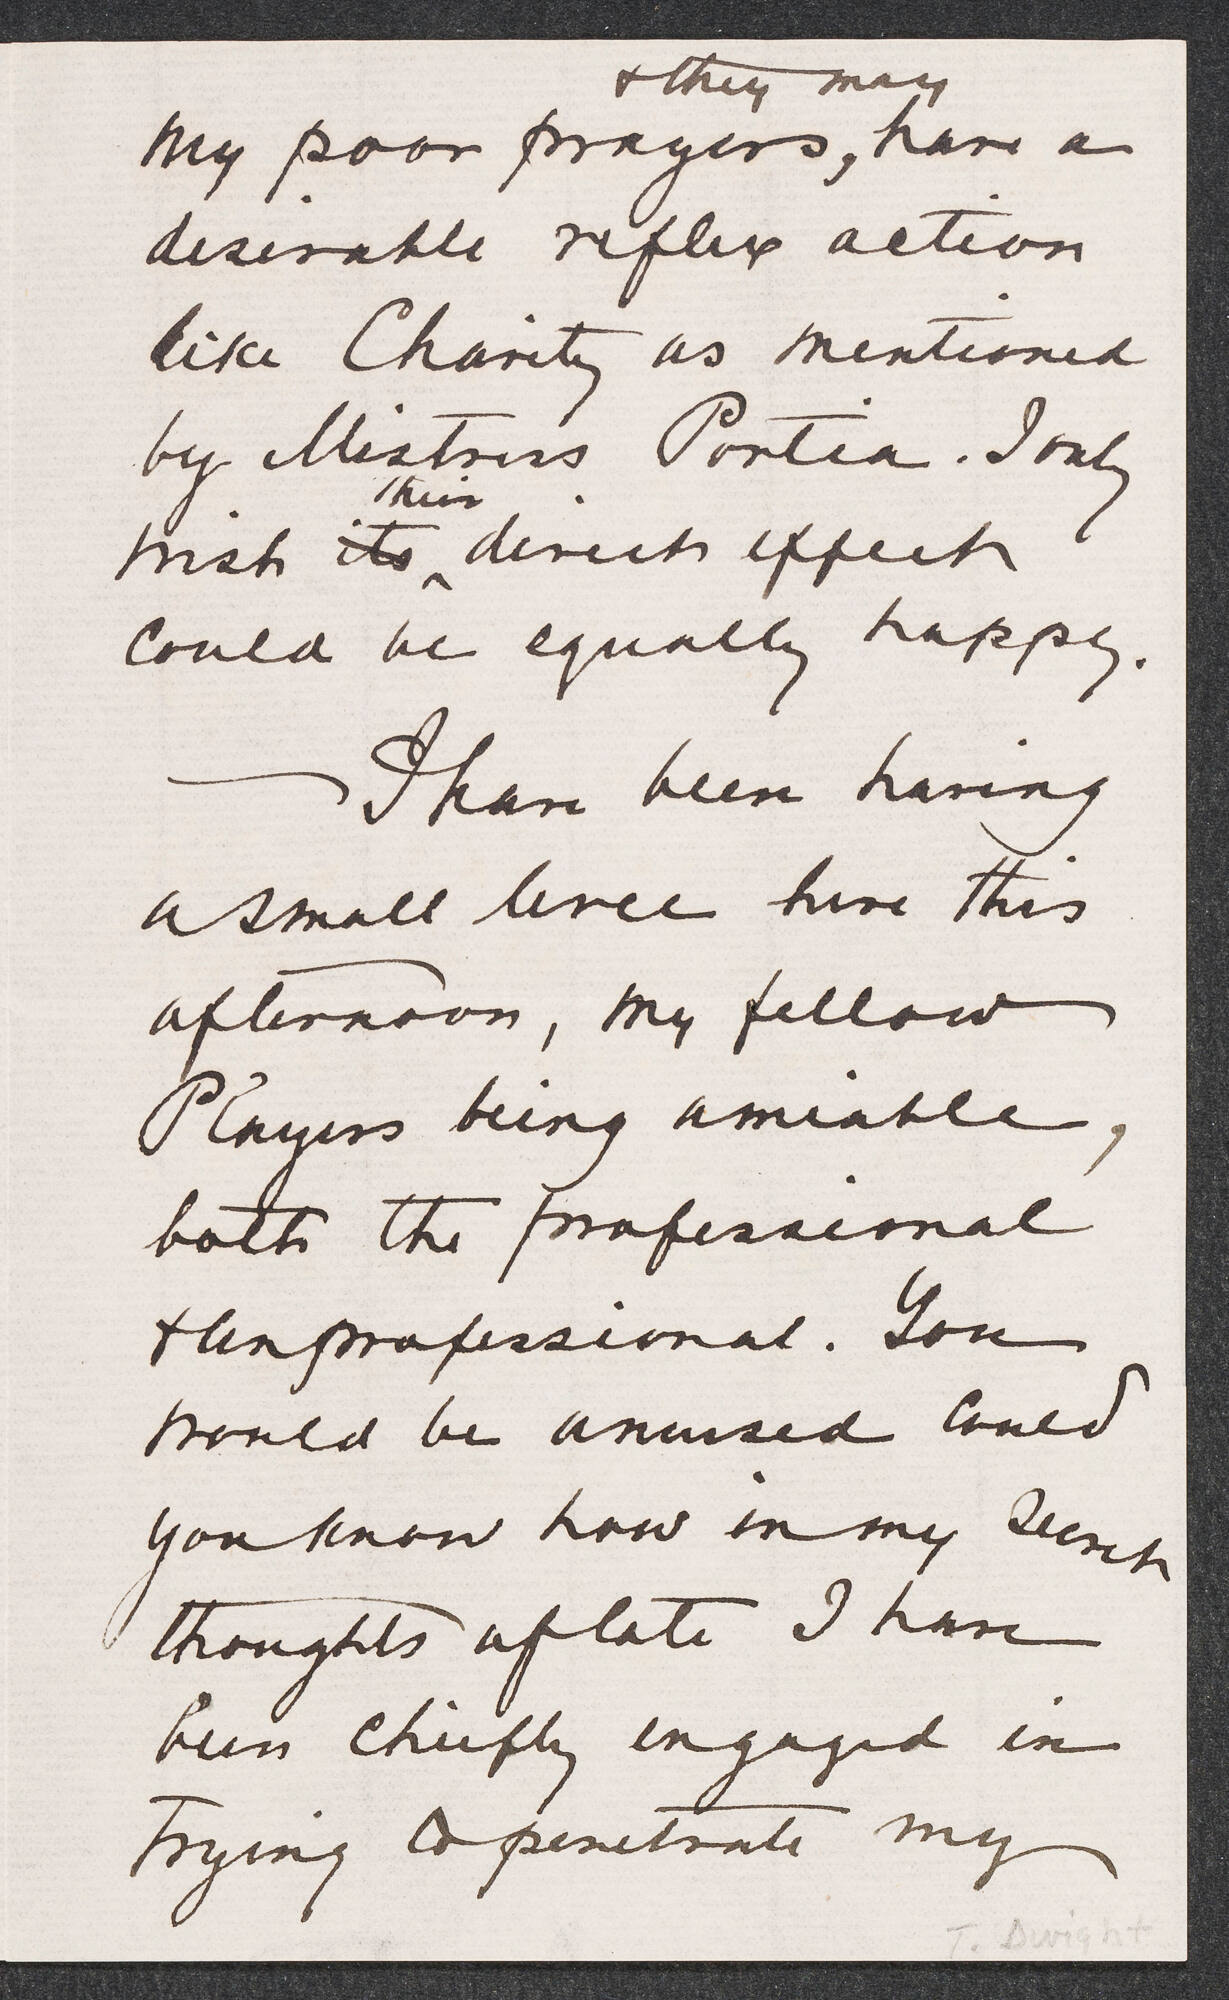 & they may
my poor prayers, have a
desirable reflex action
like Charity as mentioned
by Mistress Portia. I only
their
wish its ^ direct effect
could be equally happy.
— I have been having
a small levee here this
afternoon, my fellow
Players being amiable,
both the professional
& unprofessional. You
would be amused could
you know how in my secret
thoughts of late I have
been chiefly engaged in
trying to penetrate my
T. Dwight